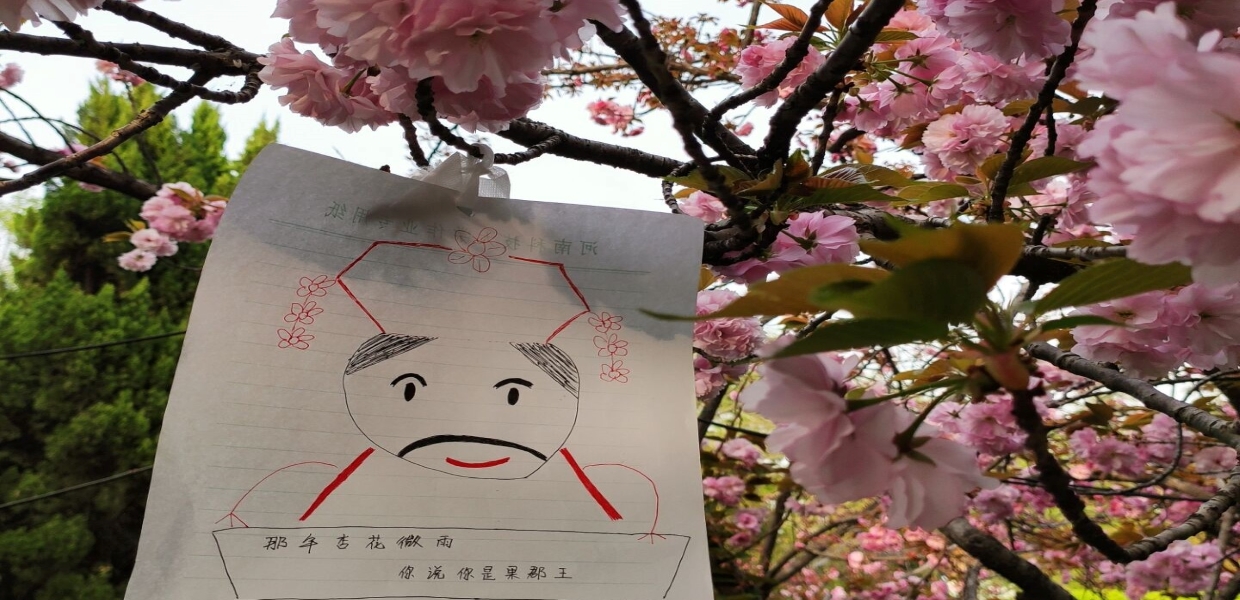 河南科技
那年杏花微雨
你说你是果郡王